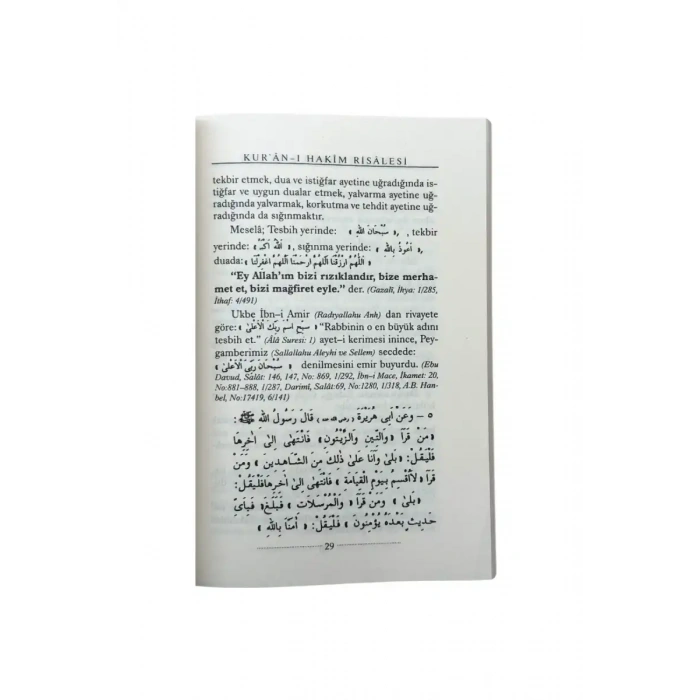 KUR'ÂN-I HAKÎM RİSÂLESİ
tekbir etmek, dua ve istiğfar ayetine uğradığında is-
tiğfar ve uygun dualar etmek, yalvarma ayetine uğ-
radığında yalvarmak, korkutma ve tehdit ayetine uğ-
radığında da sığınmaktır.
Meselâ; Tesbih yerinde: « سُبْحَانَ اللهِ », tekbir
yerinde: « اَللهُ اَكْبَرُ », sığınma yerinde: « اَعُوذُ بِاللهِ »,
duada: « اَللّٰهُمَّ ارْزُقْنَا اَللّٰهُمَّ ارْحَمْنَا اَللّٰهُمَّ اغْفِرْلَنَا »
“Ey Allah'ım bizi rızıklandır, bize merha-
met et, bizi mağfiret eyle.” der. (Gazalî, İhya: 1/285,
İthaf: 4/491)
Ukbe İbn-i Amir (Radıyallahu Anh) dan rivayete
göre: « سَبِّحِ اسْمَ رَبِّكَ الْاَعْلٰى » “Rabbinin o en büyük adını
tesbih et.” (Âlâ Suresi: 1) ayet-i kerimesi inince, Pey-
gamberimiz (Sallallahu Aleyhi ve Sellem) secdede:
« سُبْحَانَ رَبِّىَ الْاَعْلٰى » denilmesini emir buyurdu. (Ebu
Davud, Salât: 146, 147, No: 869, 1/292, İbn-i Mace, İkamet: 20,
No:881-888, 1/287, Darimî, Salât:69, No:1280, 1/318, A.B. Han-
bel, No:17419, 6/141)
٥ – وَعَنْ اَبِى هُرَيْرَةَ (رضى الله عنه) قَالَ رَسُولُ اللهِ ﷺ:
«مَنْ قَرَاَ « وَالتِّينِ وَالزَّيْتُونِ» فَانْتَهٰى اِلٰى اٰخِرِهَا
فَلْيَقُلْ: «بَلٰى وَاَنَا عَلٰى ذٰلِكَ مِنَ الشَّاهِدِينَ» وَمَنْ
قَرَاَ «لَا اُقْسِمُ بِيَوْمِ الْقِيَامَةِ» فَانْتَهٰى اِلٰى اٰخِرِهَا فَلْيَقُلْ:
«بَلٰى» وَمَنْ قَرَاَ « وَالْمُرْسَلَاتِ» فَبَلَغَ «فَبِاَىِّ
حَدِيثٍ بَعْدَهُ يُؤْمِنُونَ» فَلْيَقُلْ: « اٰمَنَّا بِاللهِ »
29